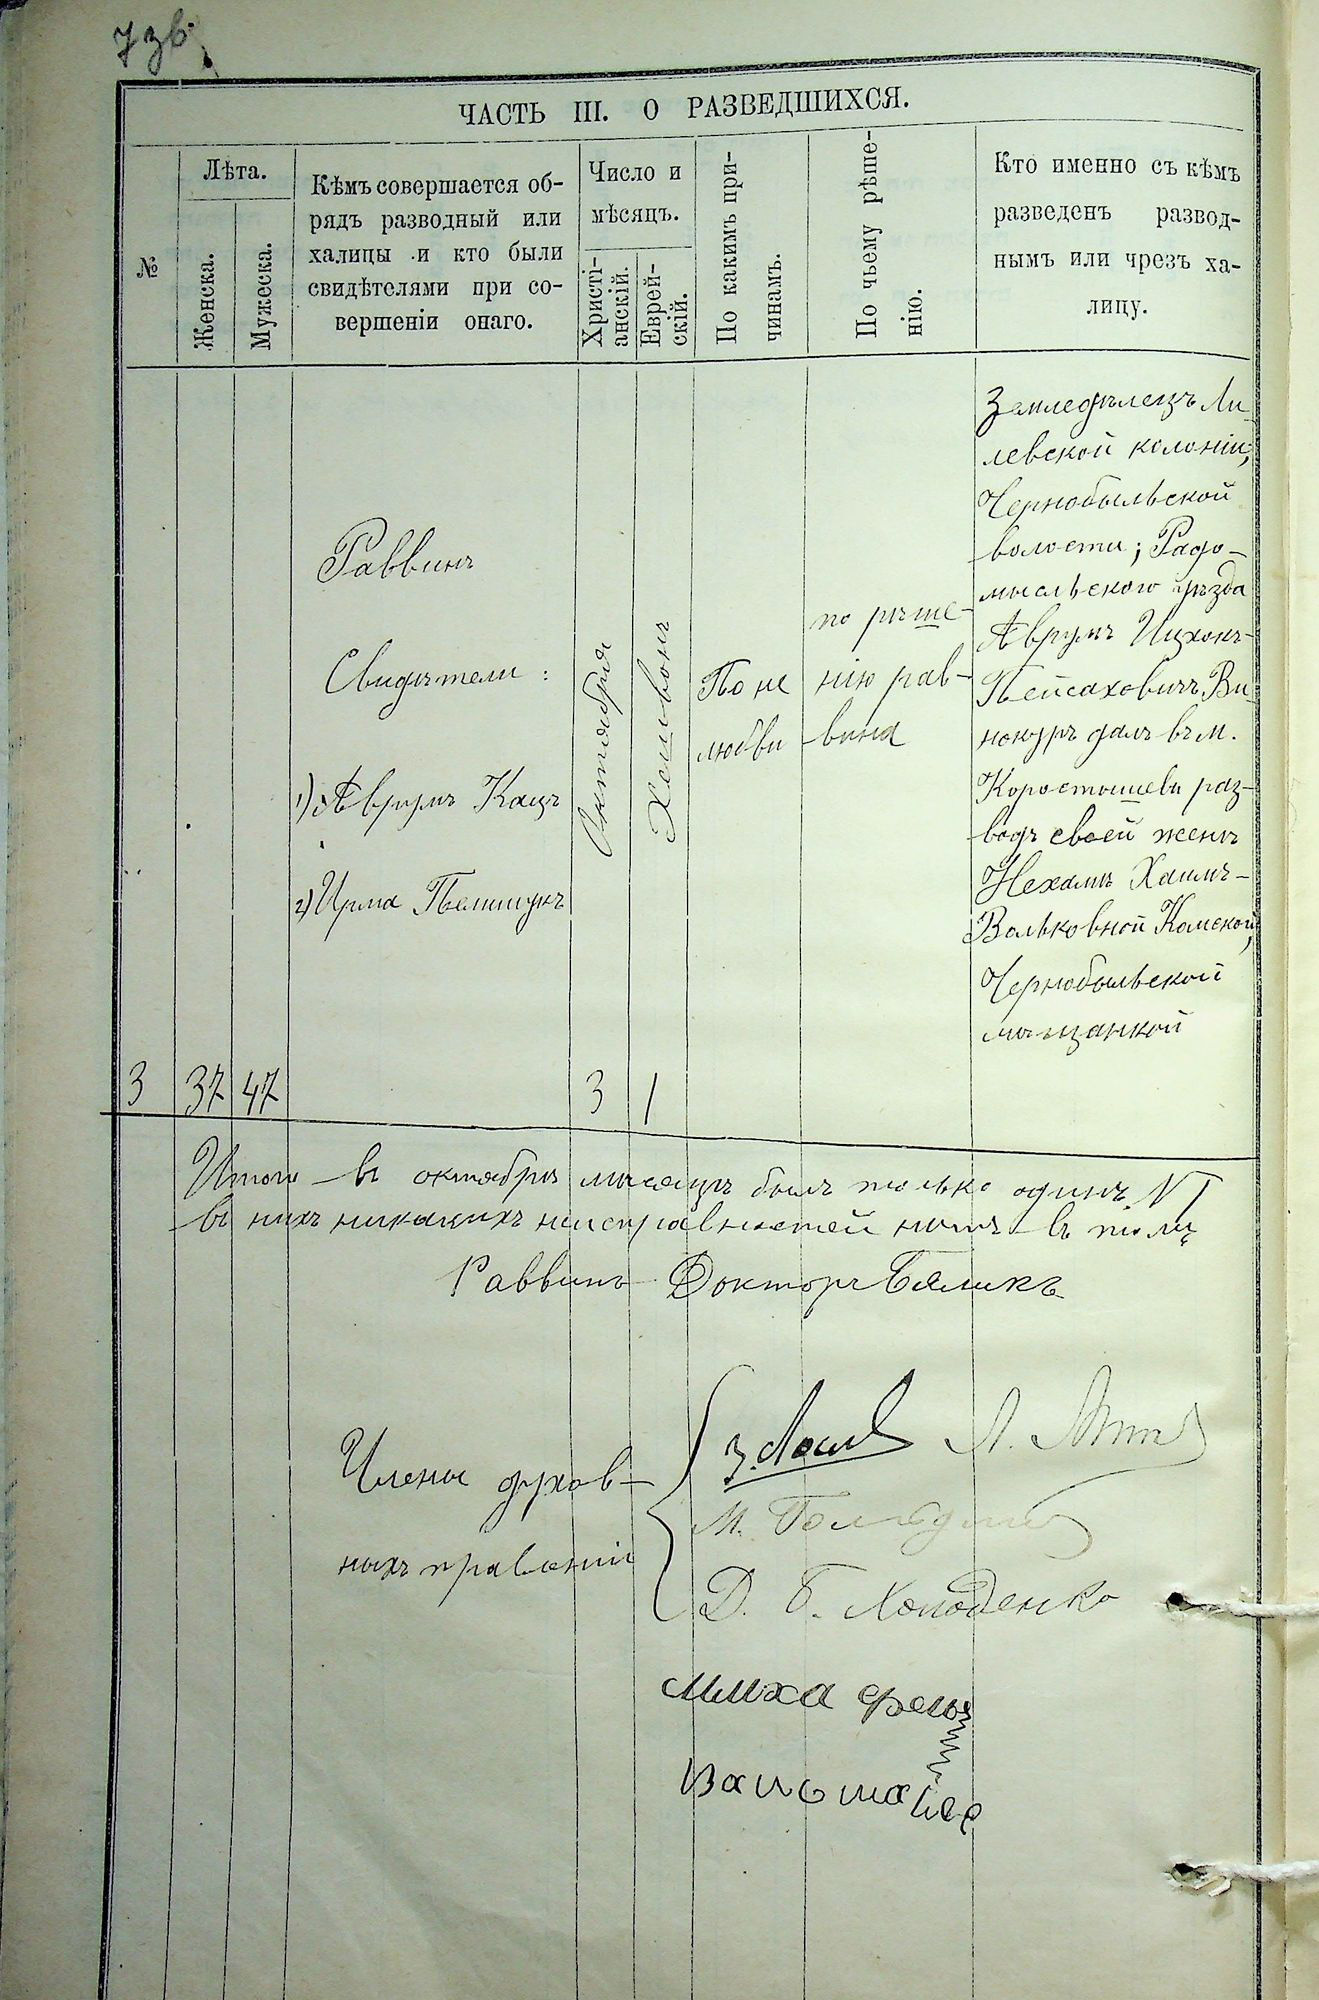 ЧАСТЬ III. О РАЗВЕДШИХСЯ.
№
Лѣта.
Женска.
Мужеска.
Кѣмъ совершается об-
рядъ разводный или
халицы и кто были
свидѣтелями при со-
вершеніи онаго.
Число и
мѣсяцъ.
Христі-
анскій.
Еврей-
скій.
По какимъ при-
чинамъ.
По чьему рѣше-
нію.
Кто именно съ кѣмъ
разведенъ развод-
нымъ или чрезъ ха-
лицу.
3
37
47
Раввинъ
Свидѣтели:
1) Аврумъ Кацъ
2) Ирма
Октября
3
Хешвонъ
1
По не
любви
по рѣше-
нію рав-
вина
Земледѣлецъ Ли
левской колоніи,
Чернобыльской
волости; Радо-
мысльского уѣзда
Аврумъ Ицхокъ-
Пейсаховичъ Ви
нокуръ далъ въ м.
Коростышевѣ раз-
водъ своей женѣ
Нехамѣ Хаимъ-
Вольковной Комской,
Чернобыльской
мѣщанкой
Итого въ октябрѣ мѣсяцѣ былъ только одинъ №
въ нихъ никакихъ неисправностей нѣтъ въ томъ
Раввинъ Докторъ Бяликъ
Члены духов-
ныхъ правленій
Д. Б. Холоденко